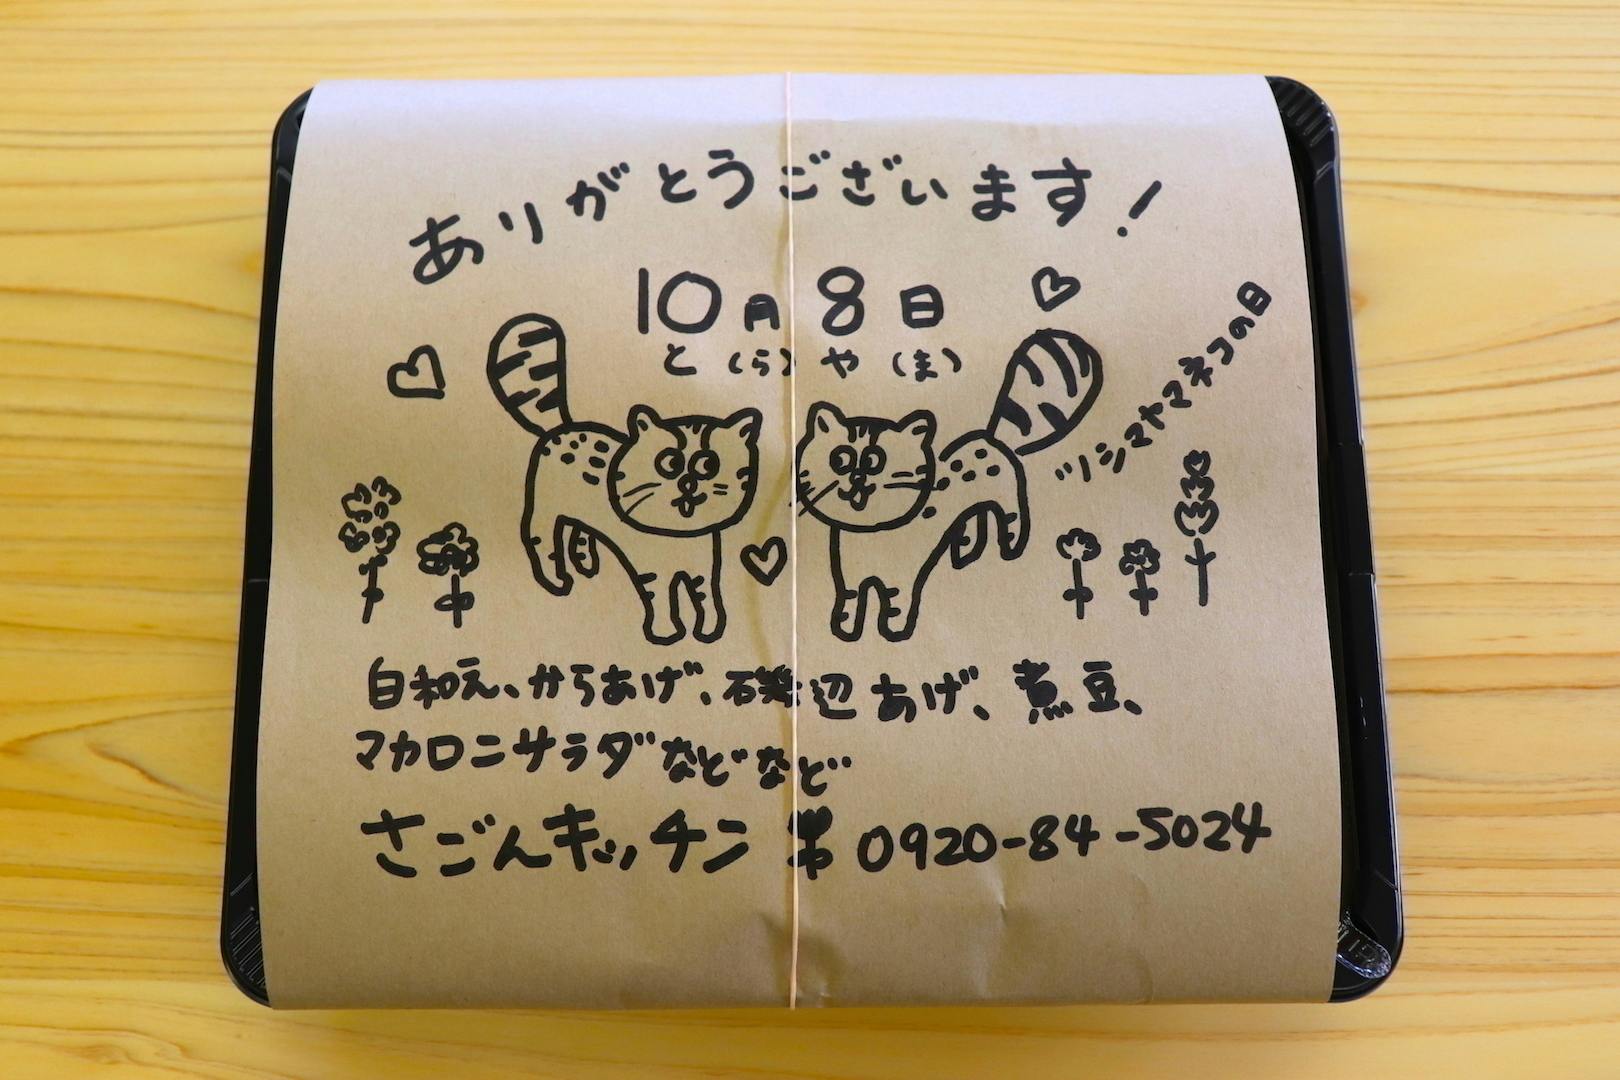 ありがとうございます!
10月8日
と(ら)や(ま)
ツシマヤマネコの日
白和え、からあげ、磯辺あげ、煮豆、
マカロニサラダなどなど
さごんキッチン 0920-84-5024